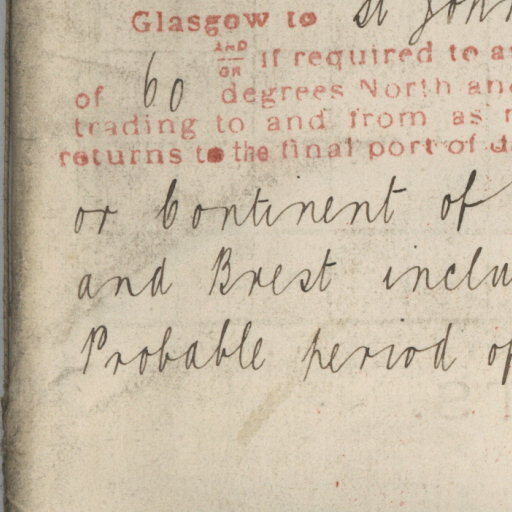 Glasgow to St John
AND
OR if required to a
of 60 degrees North and
trading to and from as
returns to the final port of d
or Continent of
and Brest inclu
Probable period of